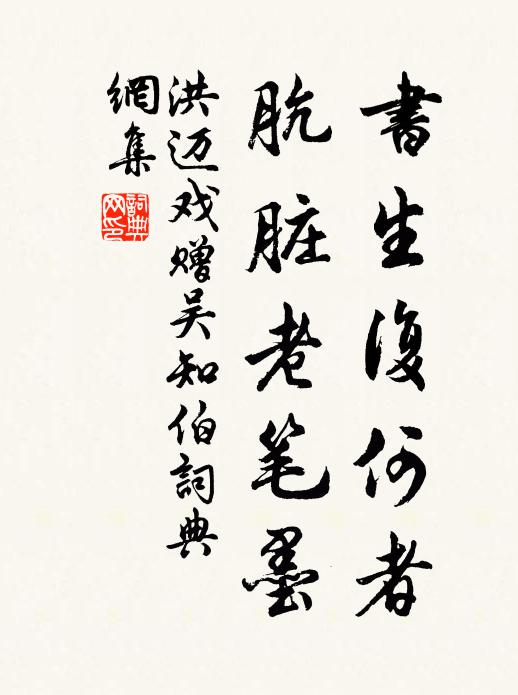 書生復何者
肮脏老笔墨
洪迈戏赠吴知伯詞典
網集
詞典
网印